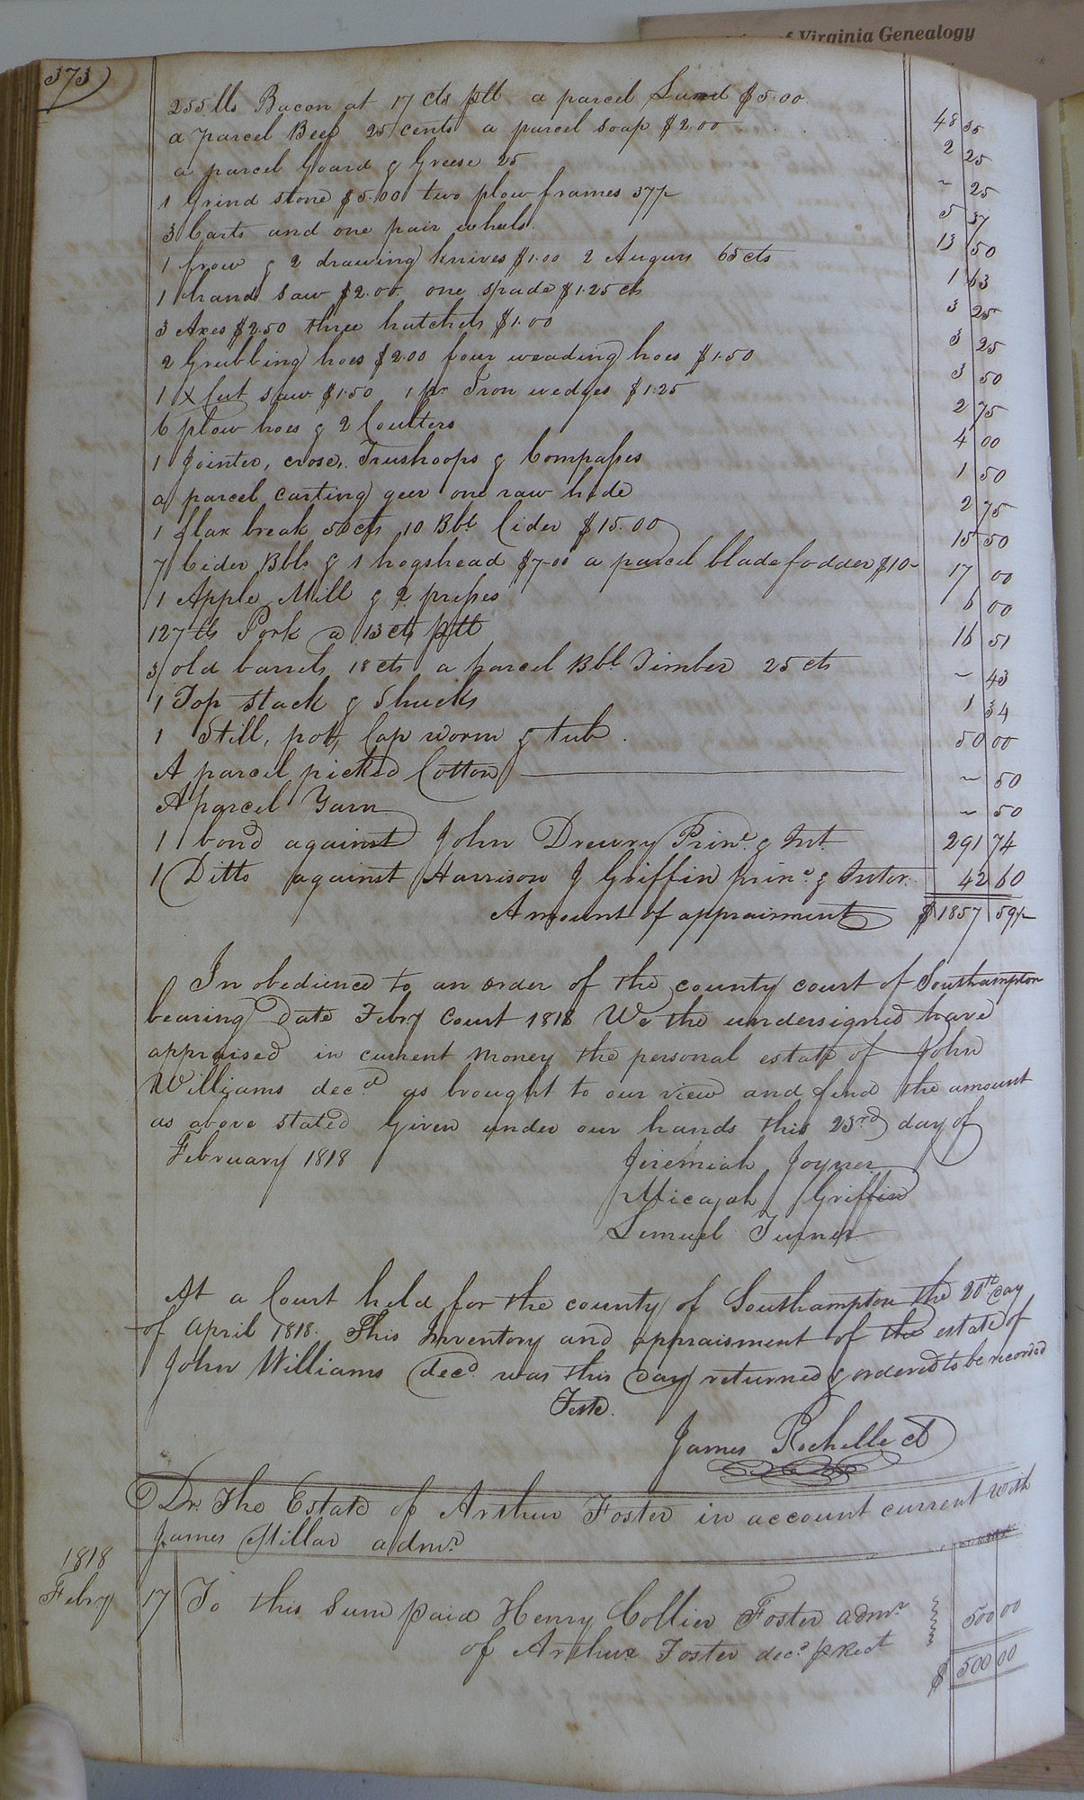 of Virginia Genealogy
373
255 lbs Bacon at 17 cts plb a parcel Lard $5.00 48 35
a parcel Beef 25 cents a parcel soap $2.00 2 25
a parcel Goard & Greese 25 ~ 25
1 Grind stone $5.00 two plow frames 37½ 5 37
3 Carts and one pair wheels. 13 50
1 frow & 2 drawing knives $1.00 2 Augurs 63 cts 1 63
1 hand saw $2.00 one spade $1.25 cts 3 25
3 Axes $2.50 three hatchets $1.00 3 25
2 Grubbing hoes $2.00 four weading hoes $1.50 3 50
1 X Cut saw $1.50 1 pr Iron wedges $1.25 2 75
6 plow hoes & 2 Coulters 4 00
1 Jointer, crose, Trushoops & Compasses 1 50
a parcel carting geer one raw hide 2 75
1 flax break 50 cts 10 Bbl Cider $15.00 15 50
7 Cider Bbls & 1 hogshead $7.00 a parcel blade fodder $10- 17 00
1 Apple Mill & 2 presses 6 00
127 lb Pork a 13 cts plb 16 51
3 old barrels 18 cts a parcel Bbl Timber 25 cts ~ 43
1 Top stack & Shucks 1 34
1 Still, pot, Cap worm & tub. 50 00
A parcel picked Cotton ~ 50
A parcel Yarn ~ 50
1 bond against John Drewry Prine. & Int. 291 74
1 Ditto against Harrison J Griffin prine. & Inter. 42 60
Amount of appraisment $1857 59½
In obedience to an order of the county court of Southampton
bearing date Febry Court 1818 We the undersigned have
appraised in current money the personal estate of John
Williams decd as brought to our view and find the amount
as above stated Given under our hands this 23rd day of
February 1818 Jeremiah Joyner
Micajah Griffin
Lemuel Turner
At a Court held for the county of Southampton the 20th day
of April 1818. This Inventory and appraisment of the estate of
John Williams decd was this day returned & ordered to be recorded
Teste.
James Rochelle ct
Dr. The Estate of Arthur Foster in account current with
James Millar admr
1818
Febry 17 To this Sum paid Henry Collier Foster admr 500 00
of Arthur Foster decd p Rect
$ 500 00